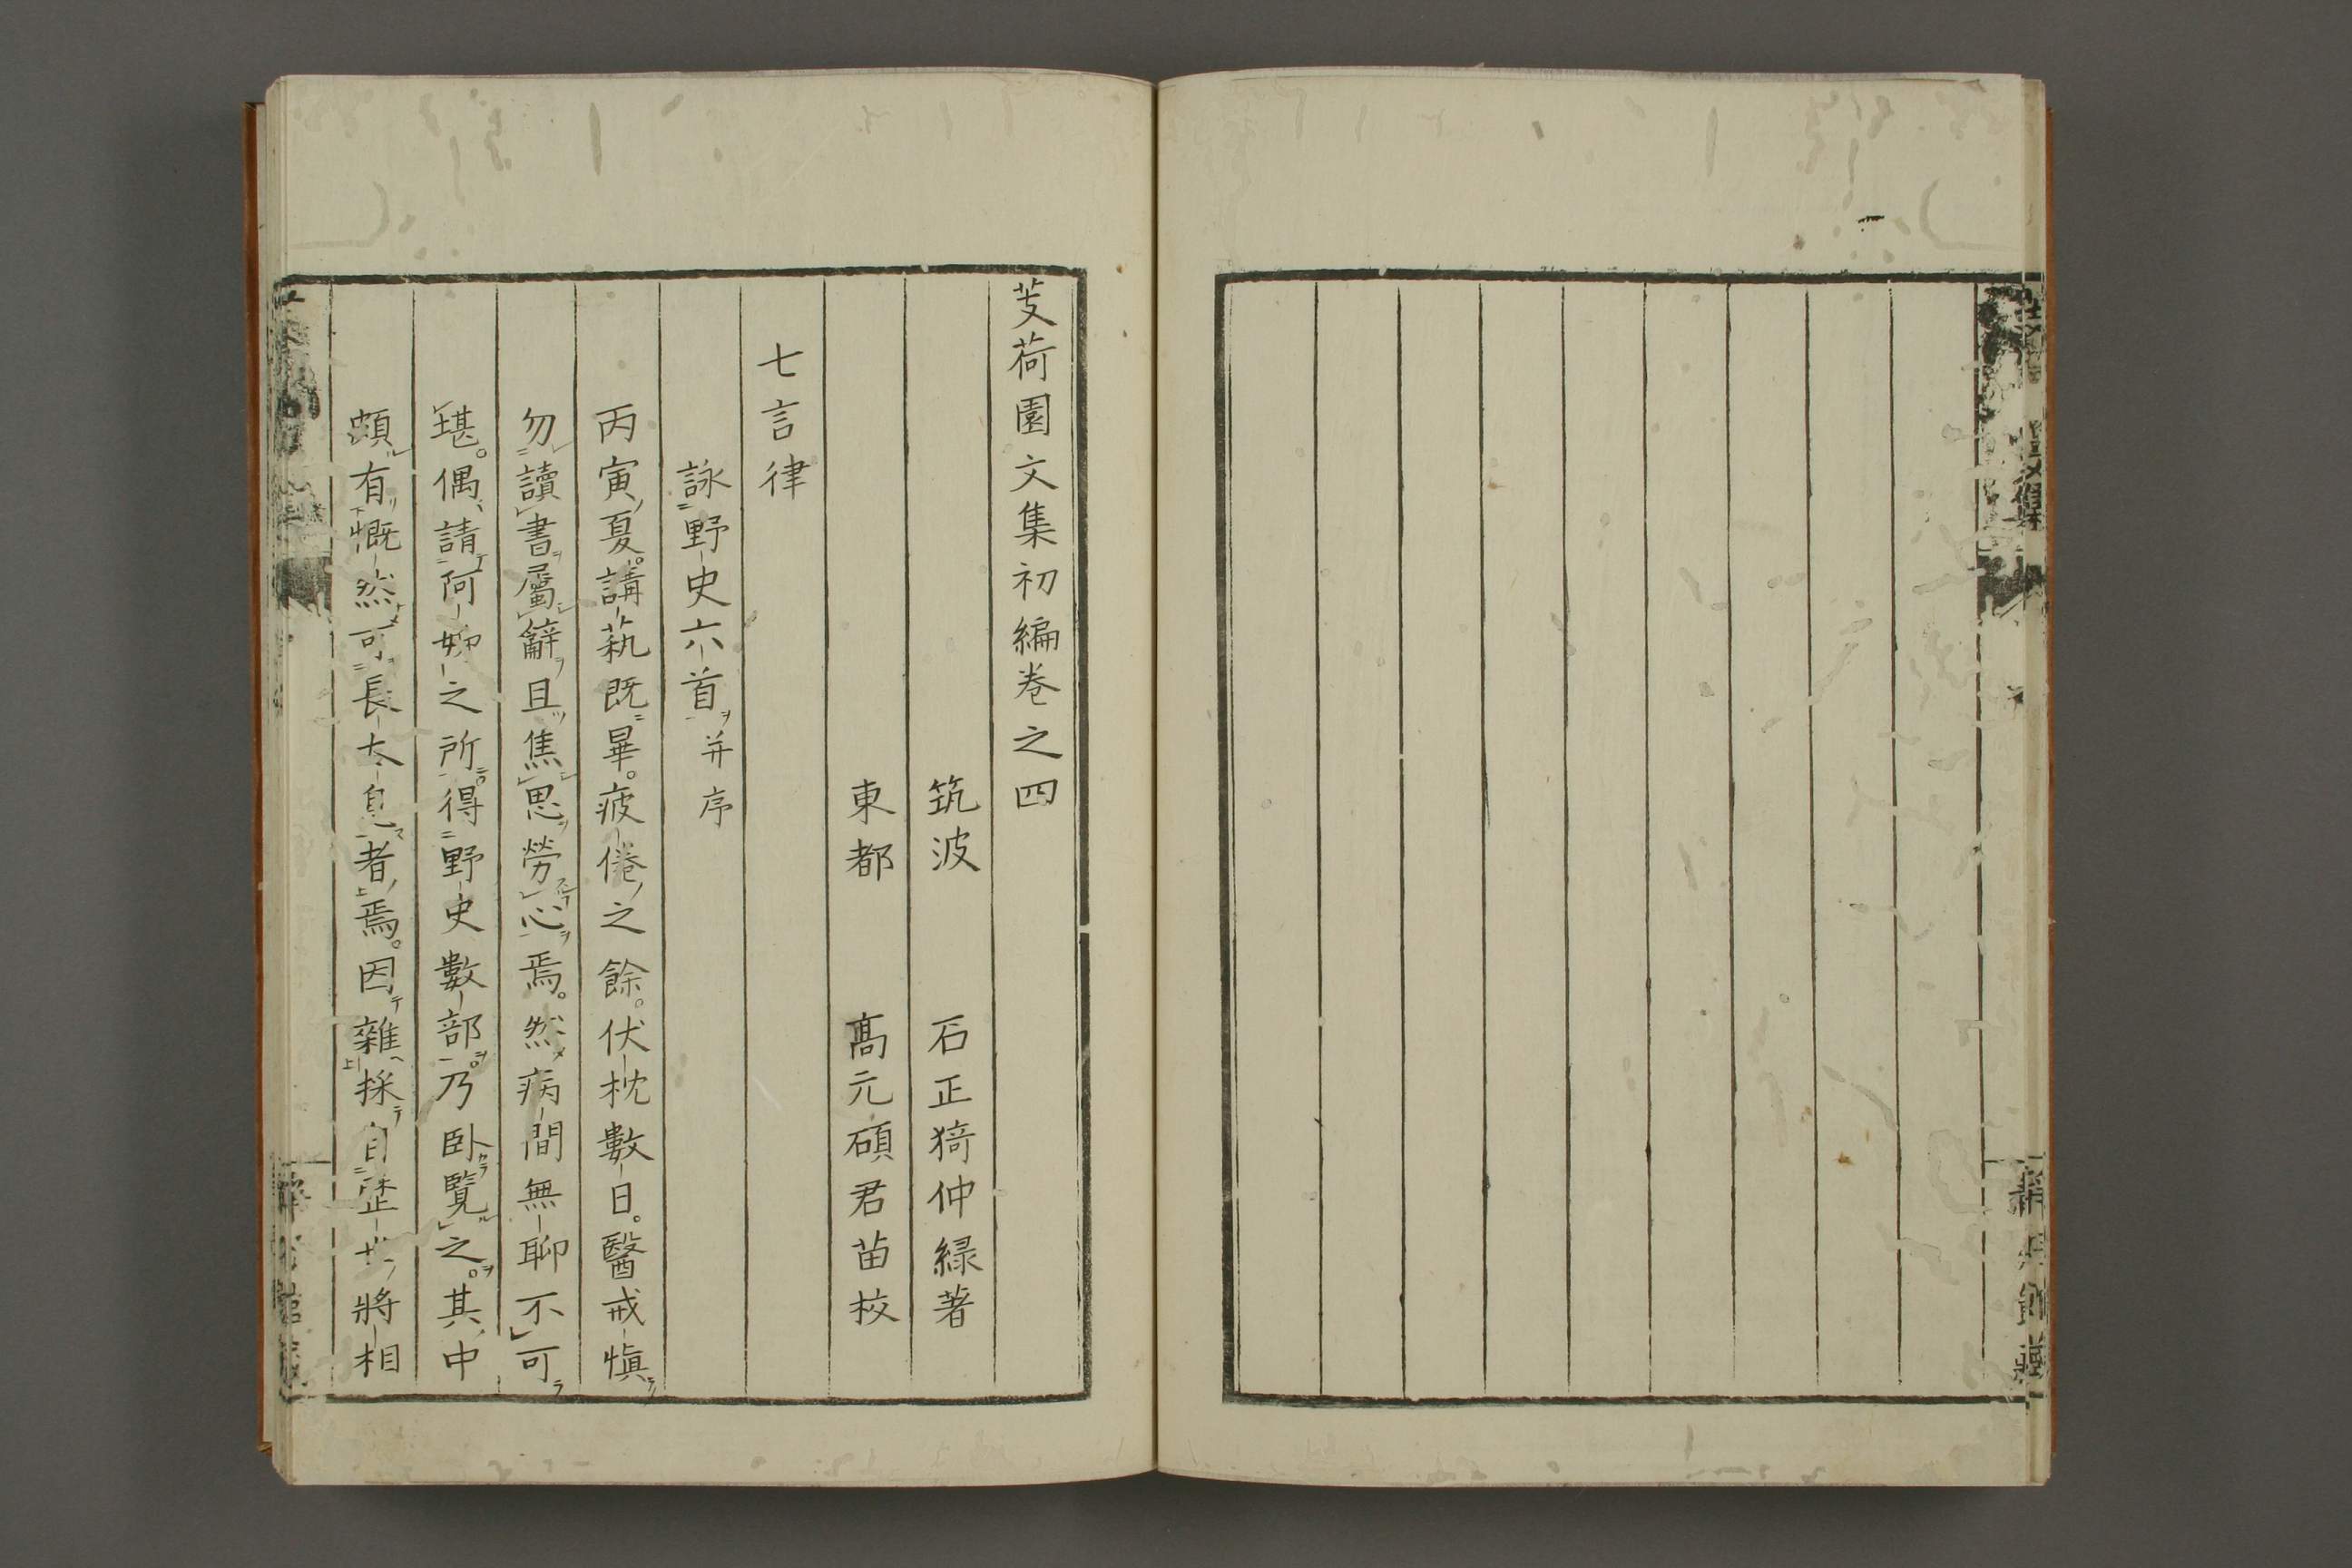 芰荷園文集初編卷之四
筑波 石正猗仲緑著
東都 髙元碩君苗校
七言律
詠野史六首并序
丙寅夏。講蓺既畢。疲倦之餘。伏枕數日。醫戒愼
勿讀書屬辭且焦思勞心焉。然病間無聊不可
堪。偶請阿㚼之所。得野史數部。乃卧覧之。其中
頗有慨然可長太息者焉。因雜採自歴世將相